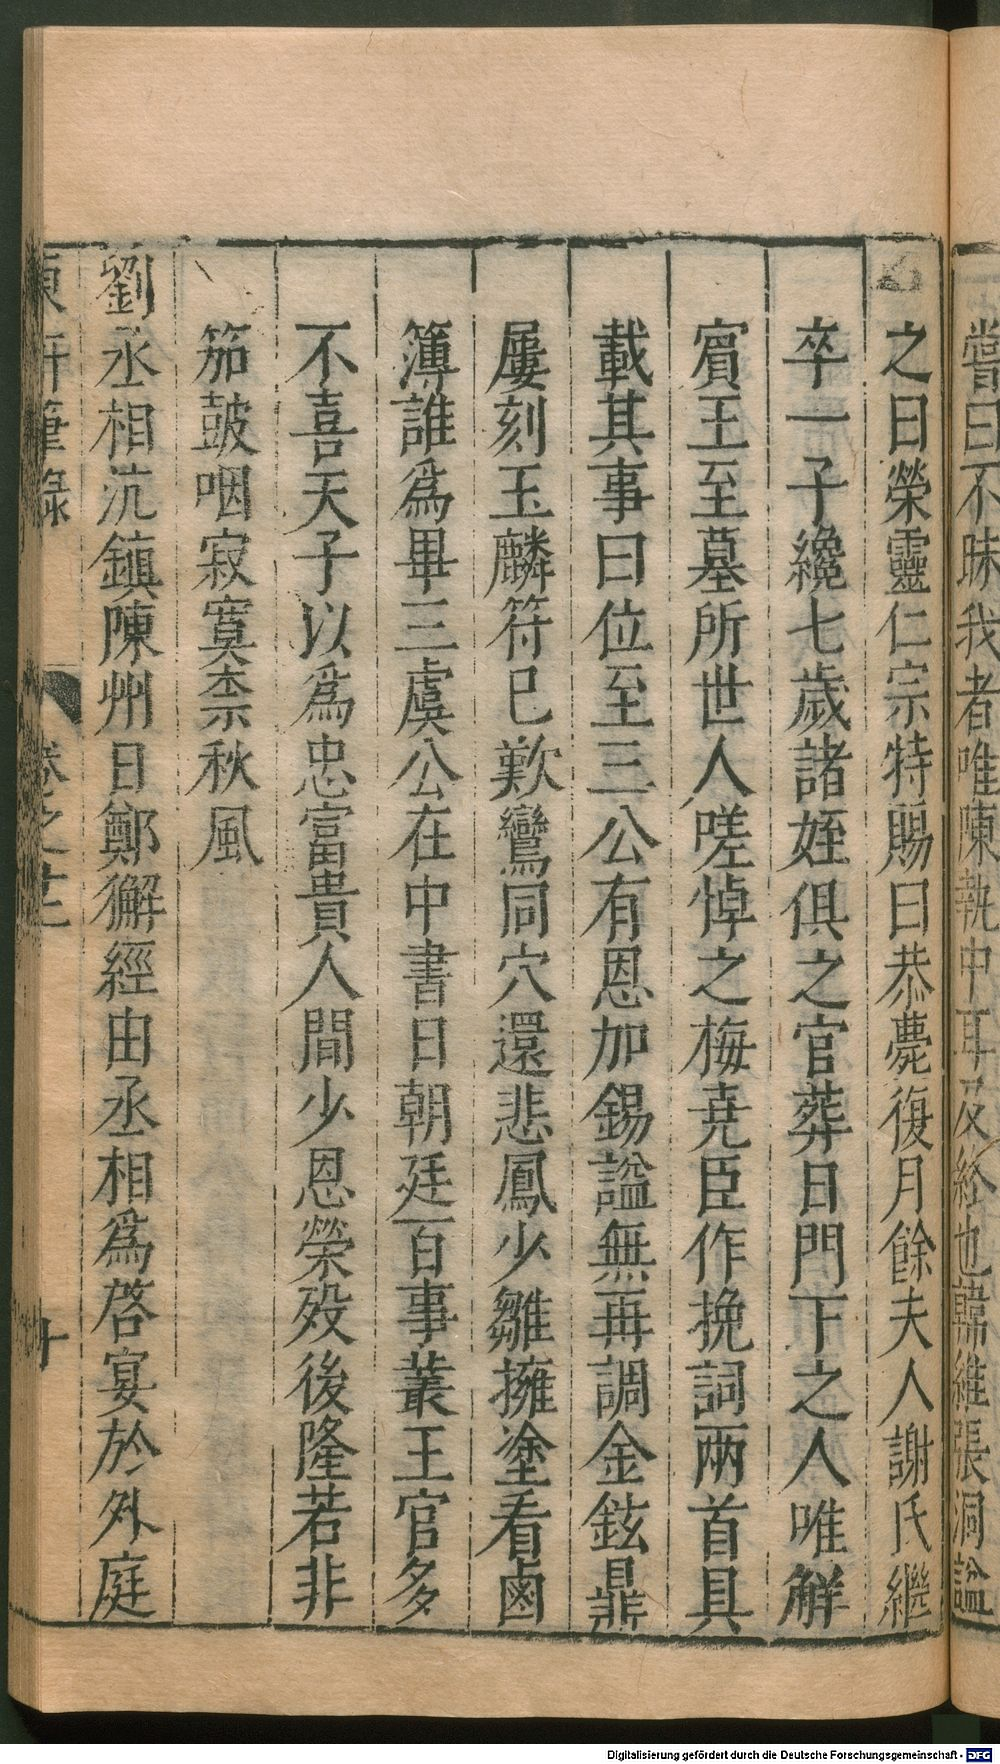 嘗曰不昧我者唯陳執中耳及終也韓維張洞諡
之曰榮靈仁宗特賜曰恭薨後月餘夫人謝氏繼
卒一子纔七歲諸姪俱之官葬日門下之人唯解
賓王至墓所世人嗟悼之梅堯臣作挽詞兩首具
載其事曰位至三公有恩加錫諡無再調金鉉鼎
屢刻玉麟符巳歎鸞同穴還悲鳳少雛擁塗看鹵
簿誰爲畢三虞公在中書日朝廷百事叢王官多
不喜天子以爲忠富貴人間少恩榮歿後隆若非
笳鼓咽寂寞柰秋風
劉丞相沆鎮陳州日鄭獬經由丞相爲啓宴於外庭
東軒筆錄 卷之十三 十
Digitalisierung gefördert durch die Deutsche Forschungsgemeinschaft - DFG